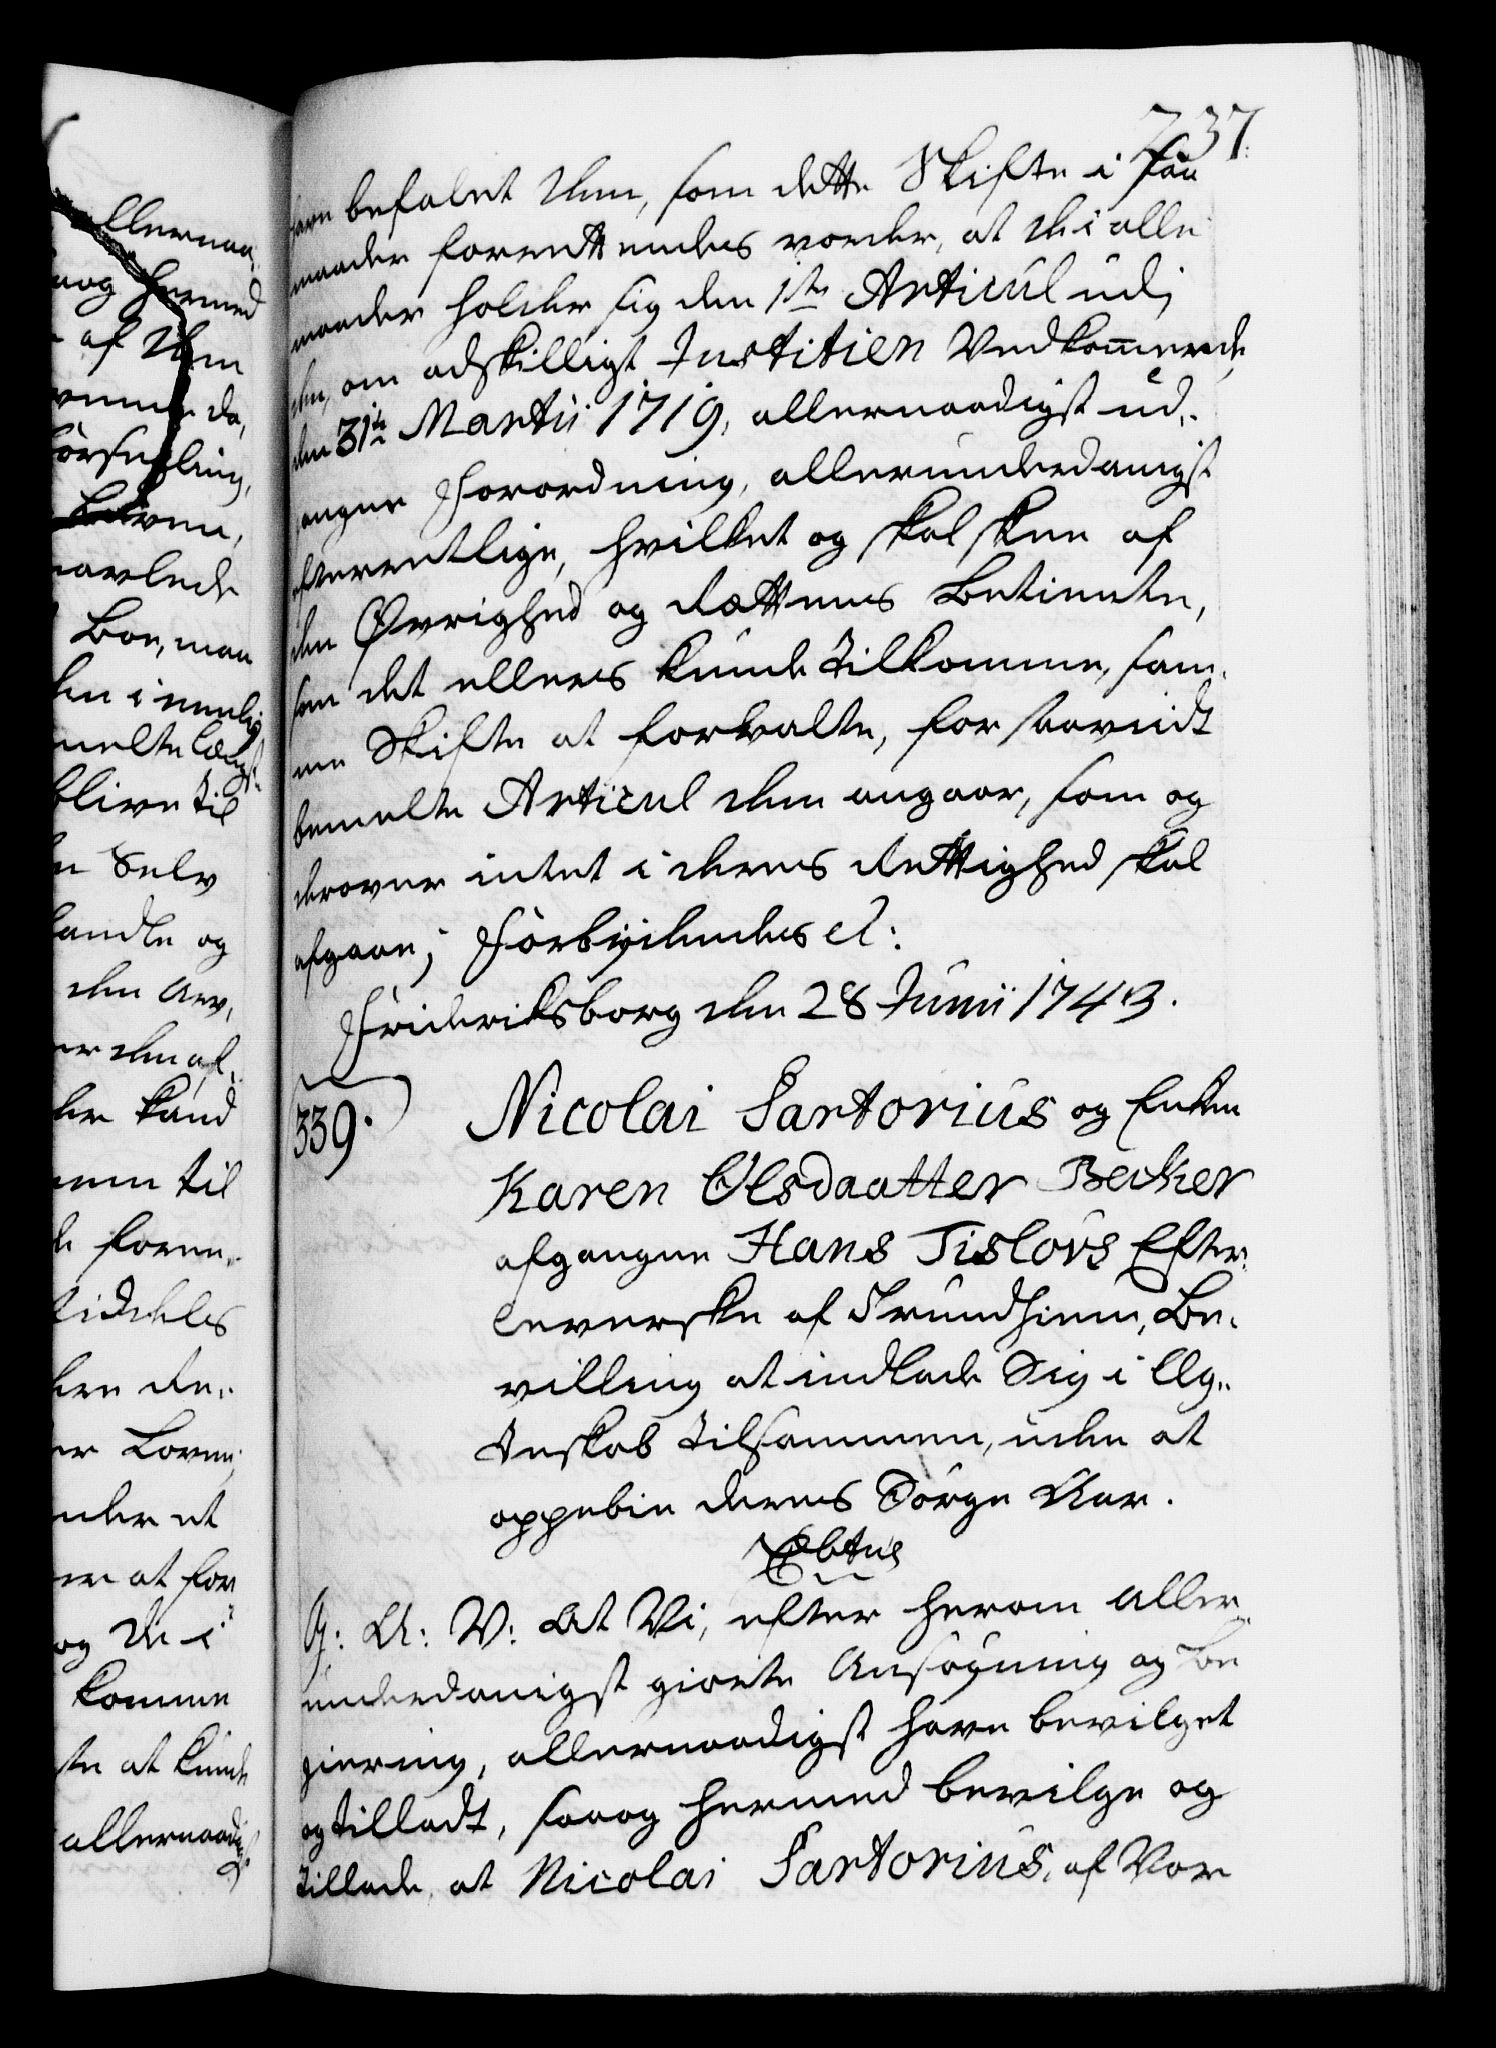 737.
have befalet dem, som dette Skifte i saa
maader forrettendes vorder, at de i alle
maader holder sig den 1ste Articul udi
den, om adskilligt Justitien Vedkommende,
den 31te Martii 1719, allernaadigst ud-
gangne Forordning, allerunderdanigst
efterrettlige, hvilket og skal skee af
den Øvrighed og Rettens Betiente,
som det ellers kunde tilkomme, sam-
me Skifte at forvalte, for saavidt
bemelte Articul dem angaar, som og
derover intet i deres Rettighed skal
afgaae; Forbydendes etc:
Friderichsborg den 28 Junii 1743.
339. Nicolai Sartorius og Enken
Karen Olsdaatter Becker
afgangne Hans Tislovs Efter-
leverske af Trundhiem, Be-
villing at indlade Sig i Eg-
teskab tilsammen, uden at
oppebie deres Sørge Aar.
G: A: V: At Vi, efter herom aller-
underdanigst giorte Ansøgning og Be
giering, allernaadigst have bevilget
og tilladt, saaog hermed bevilge og
tillade, at Nicolai Sartorius, af Vor
allernaa-
saaog hermed
af dem
Forsegling,
Boe, maa
blive til
Selv
handle og
den Arv,
kand
til
Loven
at for
og de i
komme
at kunde
allernaadigst